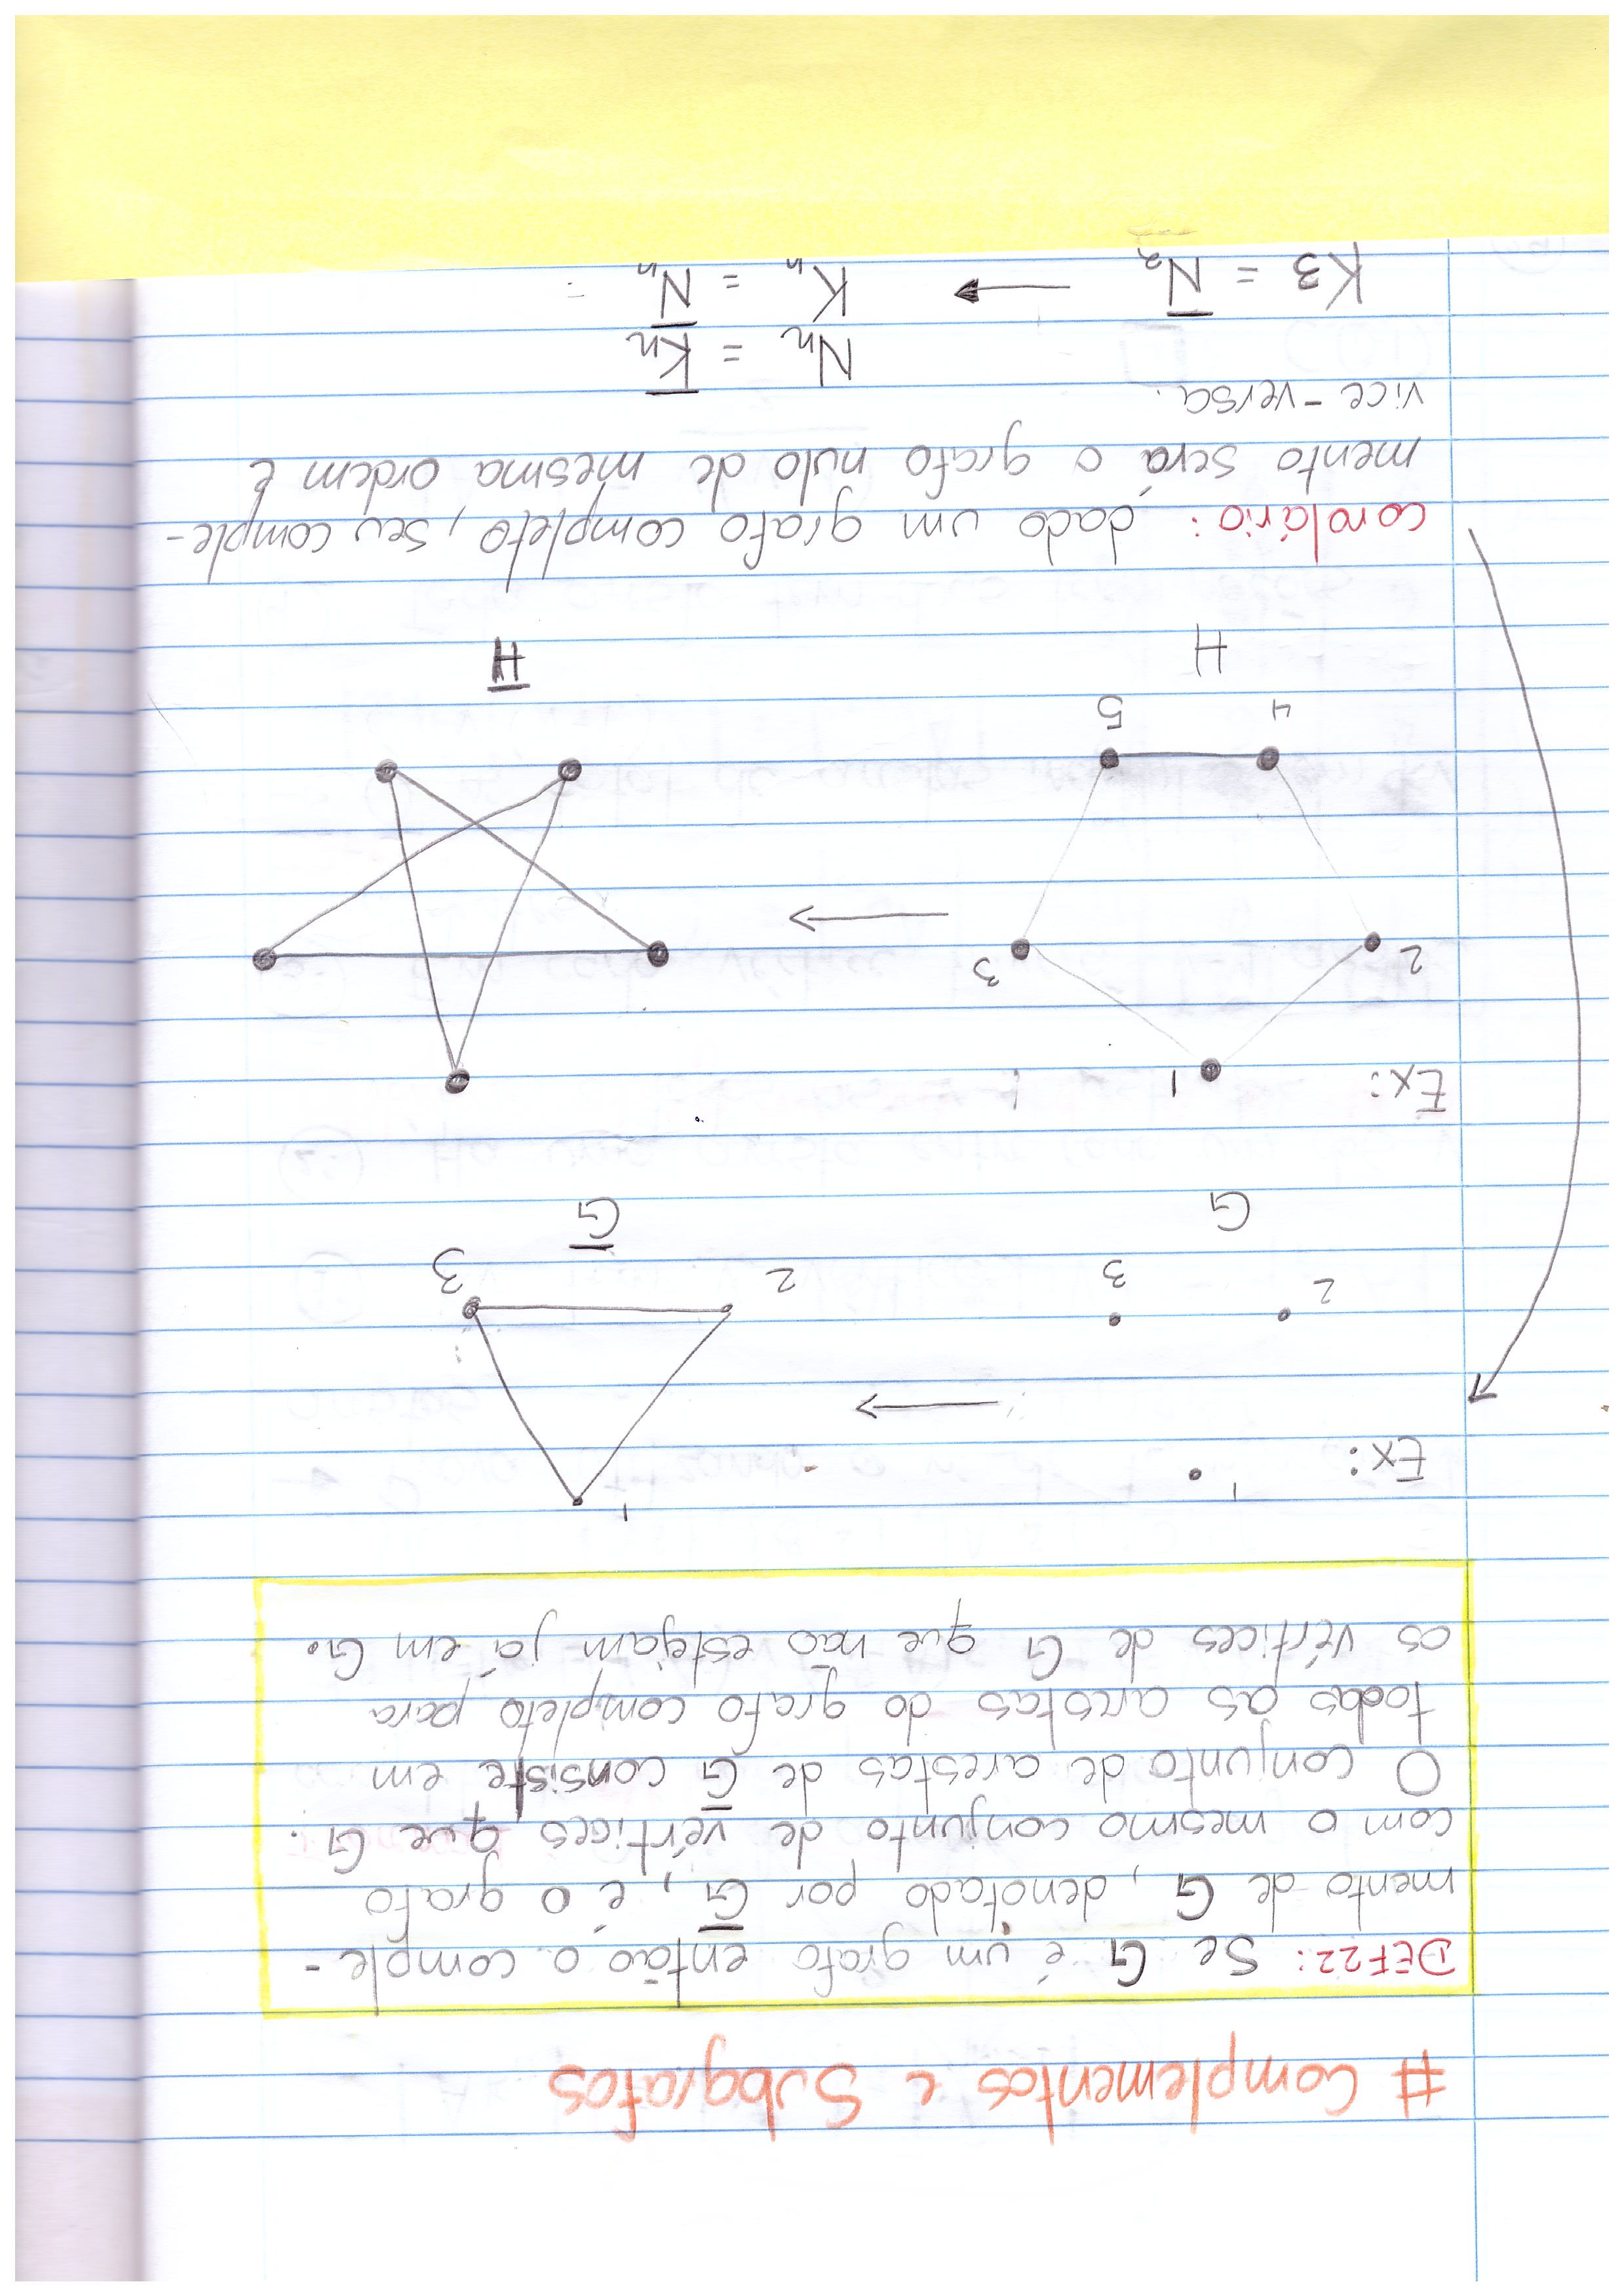 # Complementos e Subgrafos
DEF22: Se G é um grafo então o comple-
mento de G, denotado por G̅, é o grafo
com o mesmo conjunto de vértices que G.
O conjunto de arestas de G̅ consiste em
todas as arestas do grafo completo para
os vértices de G que não estejam já em G.
Ex: 1 1
2 3 2 3
G G̅
Ex: 1
2 3
4 5
H H̅
corolário: dado um grafo completo, seu comple-
mento será o grafo nulo de mesma ordem e
vice-versa.
Nn = K̅n
K3 = N̅3 → Kn = N̅n